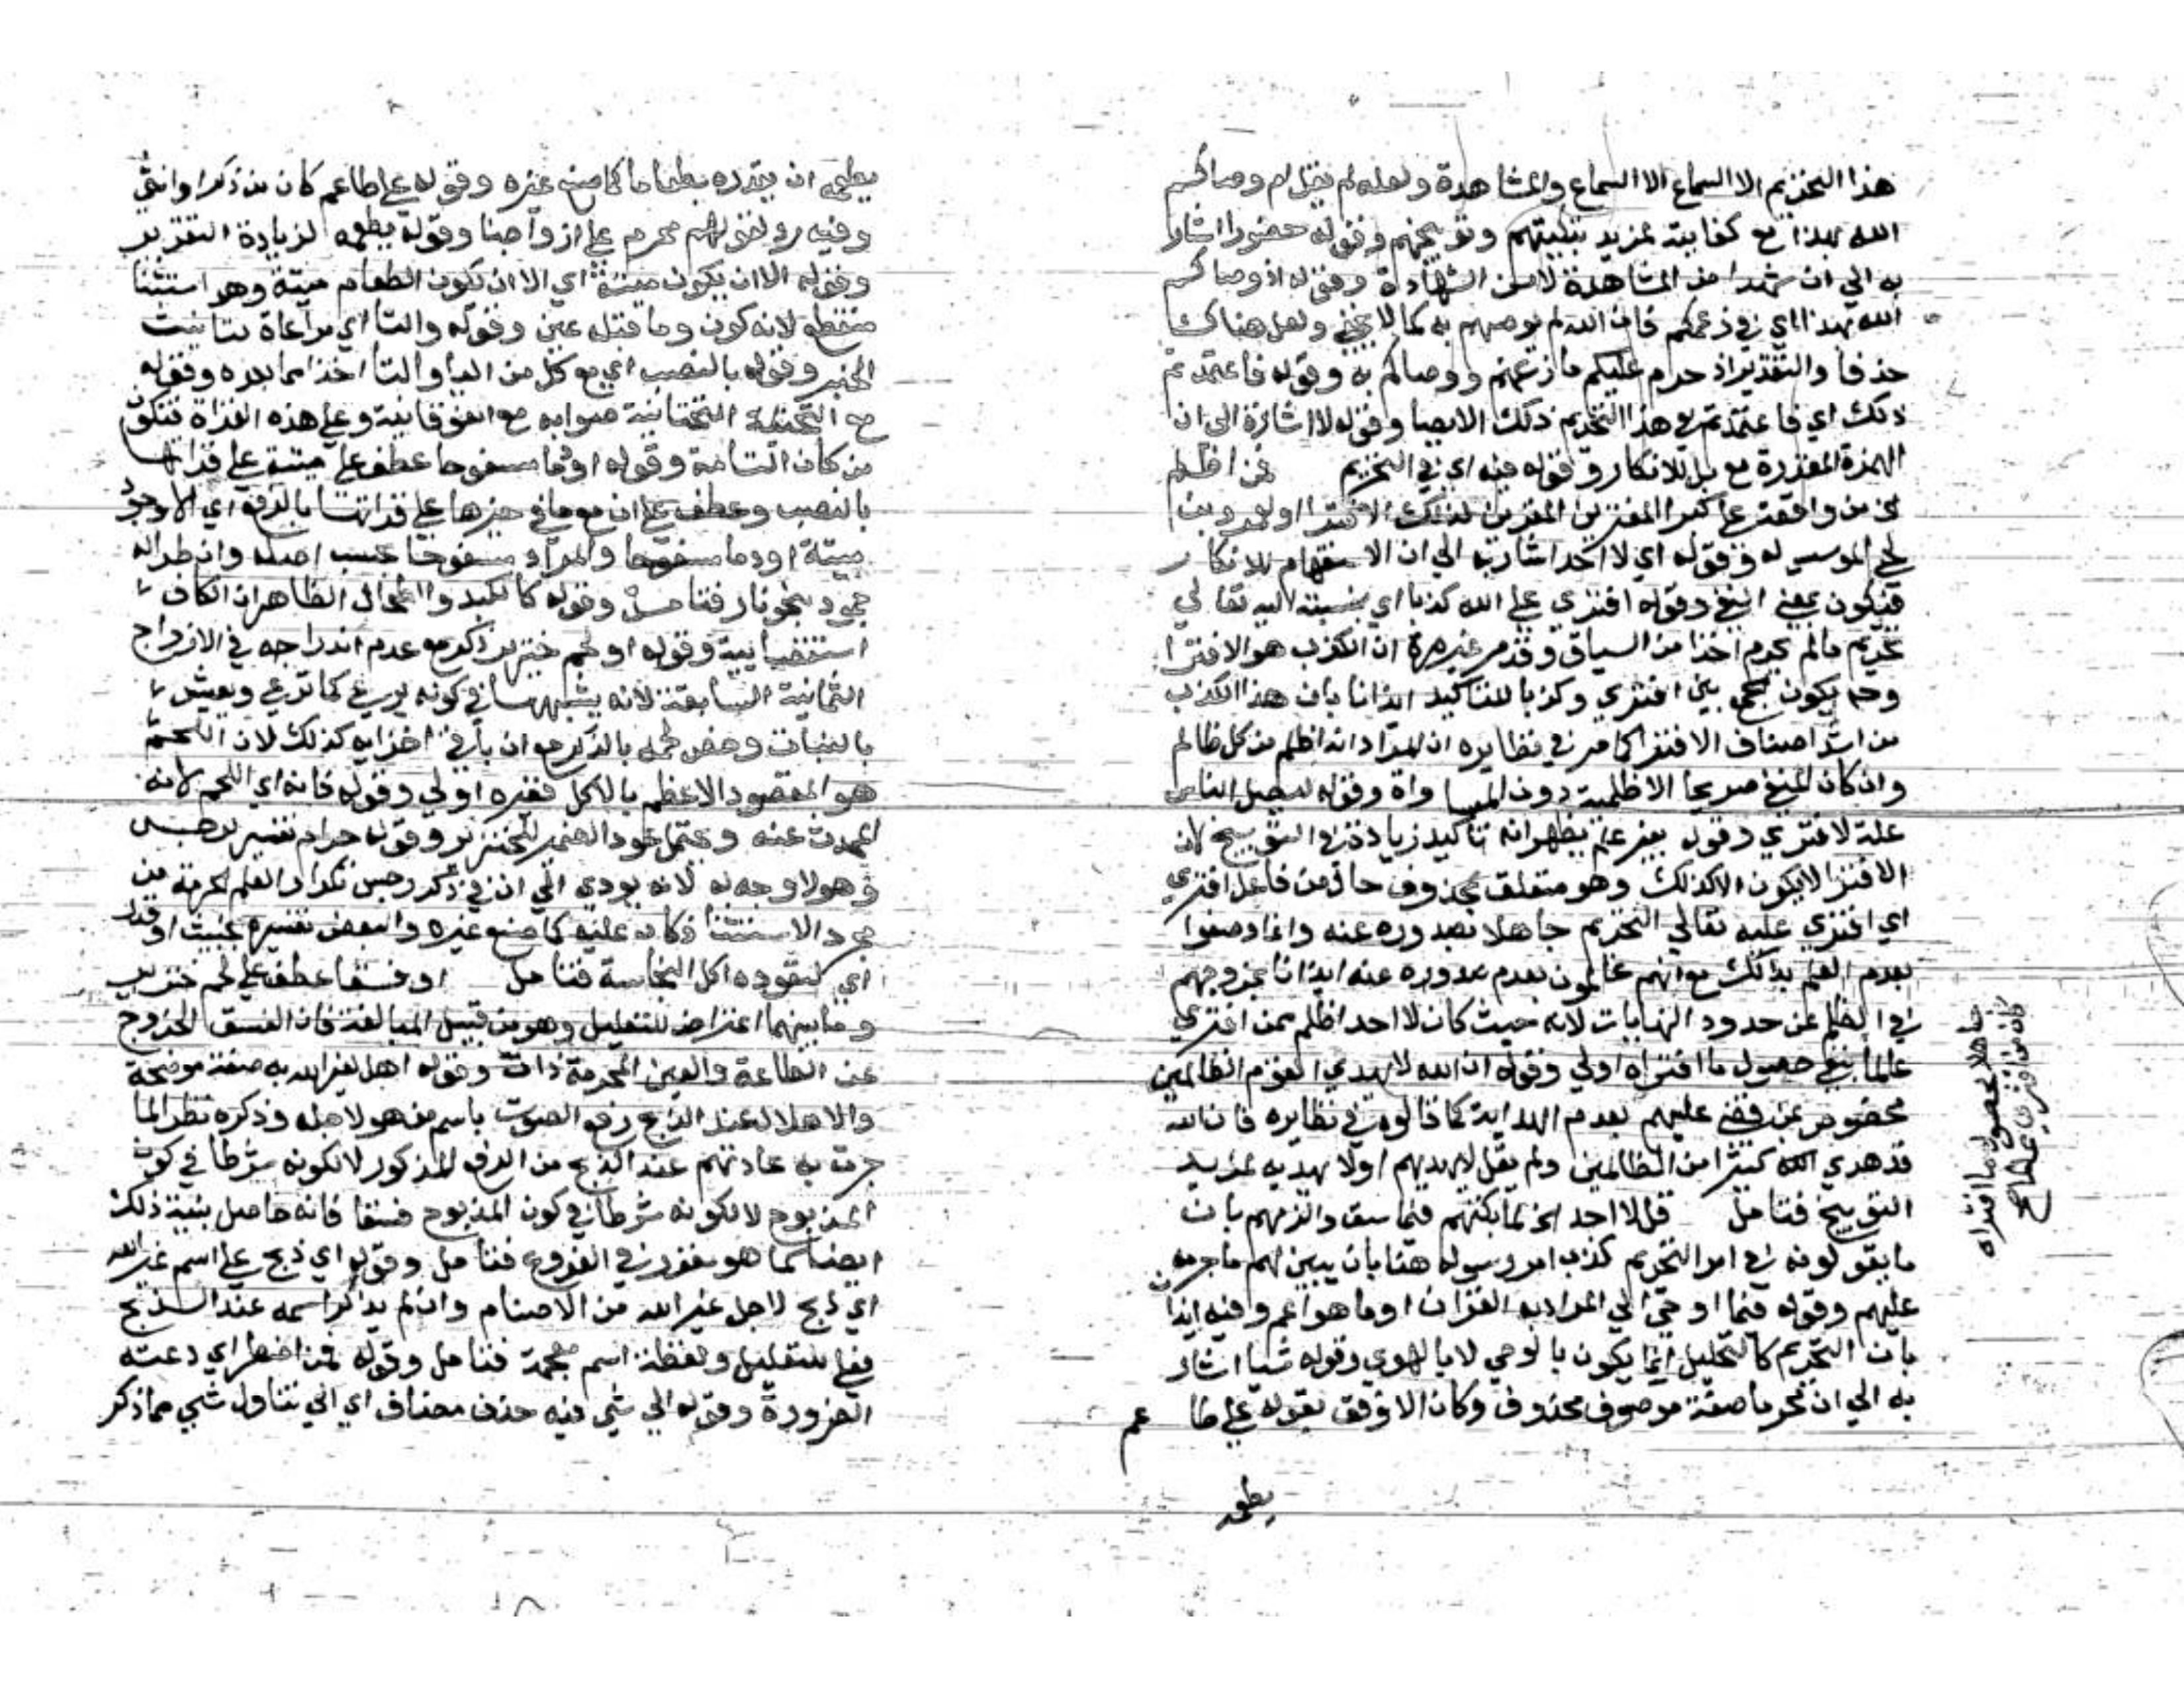 هذا التحريم الا السماع الا السماع والمشاهدة ولعله لم يقل ام وصاكم
الله بهذا مع كفايته لمزيد تبكيتهم وتوبيخهم وقوله حضورا اشار
به الي ان شهدا من المشاهدة لا من الشهادة وقوله اذ وصاكم
الله بهذا اي في زعمكم فان الله لم يوصهم به كما لا يخفي ولعل هناك
حذفا والتقدير اذ حرم عليكم ما زعمتم ووصاكم به وقوله فاعتمدتم
ذلك اي فاعتمدتم في هذا التحريم ذلك الايصا وقوله لا اشارة الي ان
الهمزة المقدرة مع بل للانكار وقوله فيه اي في التحريم فمن اظلم
له وقوله اي لا احد اشار به الي ان الاستفهام للانكار
فيكون بمعني النفي وقوله افتري علي الله كذبا اي بنسبته اليه تعالي
تحريم مالم يحرم اخذا من السياق وقد مر غير مرة ان الكذب هو الافترا
وح يكون جمع بين افتري وكذبا للتاكيد ايذانا بان هذا الكذب
من اشد اصناف الافترا كما مر في نظايره ان المراد انه اظلم من كل ظالم
وان كان المنفي صريحا الاظلمية دون المساواة وقوله ليضل الناس
علة لافتري وقوله بغير علم يظهر انه تاكيد زيادة في التوبيخ لان
الافترا لا يكون الا كذلك وهو متعلق بمحذوف حال من فاعل افتري
اي افتري عليه تعالي التحريم جاهلا بصدوره عنه وانما وصفوا
بعدم العلم بذلك مع انهم عالمون بعدم صدوره عنه ايذانا بخروجهم
في الظلم عن حدود النهايات لانه حيث كان لا احد اظلم ممن افتري
عالما بنفي حصول ما افتراه اولي وقوله ان الله لا يهدي القوم الظالمين
مخصوص بمن قضي عليهم بعدم الهداية كما قالوه في نظايره فان الله
قد هدي الله كثيرا من الظالمين ولم يقل لا يهديهم او لا يهديه لمزيد
التوبيخ فتامل قل لا احد الخ لما بكتهم فيما سبق والزمهم بان
ما يقولونه في امر التحريم كذب امر رسوله هنا بان يبين لهم ما حرمه
عليهم وقوله فيما اوحي الي المراد به القران او ما هو اعم وفيه ايذان
بان التحريم كالتحليل انما يكون بالوحي لا بالهوي وقوله شيا اشار
به الي ان محرما صفة موصوف محذوف وكان الاوفق بقوله علي طاعم
يطعمه
جاهلا بحصول ما افتراه
كان من افتري عالما الخ
يطعمه ان يقدره بطعاما كما صنع غيره وقوله علي طاعم كان من ذكر او انثي
وفيه رد لقولهم محرم علي ازواجنا وقوله يطعمه لزيادة التقرير
وقوله الا ان يكون ميتة اي الا ان تكون الطعام ميتة وهو استثنا
منقطع لانه كون وما قبل عين وقوله والتا اي مراعاة بتانيث
الخبر وقوله بالنصب اي مع كل من اليا والتا اخذا مما بعده وقوله
مع التحتية التحتانية صوابه مع الفوقانية وعلي هذه القراة فتكون
من كان التامة وقوله او دما مسفوحا عطف علي ميتة علي قراتها
بالنصب وعطف علي ان مع ما في حيزها علي قراتها بالرفع اي الا وجود
ميتة او دما مسفوحا والمراد مسفوحا حسب اصله وان طرا له
جمود بنحو نار فتامل وقوله كالكبد والطحال الظاهر ان الكاف
استقصايية وقوله او لحم خنزير ذكر مع عدم اندراجه في الازواج
الثمانية السابقة لانه يشبهها في كونه يرعي كما ترعي ويعيش
بالنبات وخص لحمه بالذكر مع ان باقي اجزايه كذلك لان اللحم
هو المقصود الاعظم بالاكل فغيره اولي وقوله فانه اي اللحم لانه
المحدث عنه ويحتمل عود الضمير للخنزير وقوله حرام تفسير لرجس
وهو لا وجه له لانه يودي الي ان في ذكر رجس تكرار العلم الحرمة من
مجرد الاستثنا فكان عليه كما صنع غيره والبعض تفسيره بخبيث او قذر
اي لتعوده اكل النجاسة فتامل او فسقا عطف علي لحم خنزير
وما بينهما اعتراض للتعليل وهو من قبيل المبالغة فان الفسق الخروج
عن الطاعة والعين المحرمة ذات وقوله اهل لغير الله به صفة موضحة
والاهلال عند الذبح رفع الصوت باسم من هو لاجله وذكره نظرا لما
جرت به عادتهم عند الذبح من الرفع المذكور لا لكونه شرطا في كون
المذبوح لا لكونه شرطا في كون المذبوح فسقا فانه حاصل بنية ذلك
ايضا كما هو مقرر في الفروع فتامل وقوله اي ذبح علي اسم غير الله
اي ذبح لاجل غير الله من الاصنام وان لم يذكر اسمه عند الذبح
فعلي للتعليل ولفظة اسم مقحمة فتامل وقوله فمن اضطر اي دعته
الضرورة وقوله الي شي فيه حذف مضاف اي الي تناول شي مما ذكر